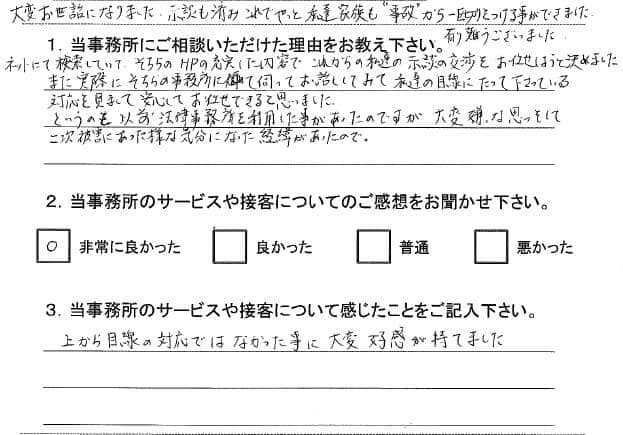 大変お世話になりました。示談も済み これでやっと 私達家族も"事故"から一区切りをつける事ができました。
有り難うございました
1. 当事務所にご相談いただけた理由をお教え下さい。
ネットにて検索していて そちらのHPの充実した内容で これからの私達の示談の交渉を お任せしようと決めました
また 実際に そちらの事務所に 伺って お話ししてみて 私達の目線にたって下さっている
対応を見まして 安心して お任せできると思いました。
というのも 以前 法律事務所を利用した事があったのですが 大変 嫌な思いをして
二次被害にあった様な気分になった 経緯があったので。
2. 当事務所のサービスや接客についてのご感想をお聞かせ下さい。
○ 非常に良かった 良かった 普通 悪かった
3. 当事務所のサービスや接客について感じたことをご記入下さい。
上から目線の対応では なかった事に 大変 好感が持てました